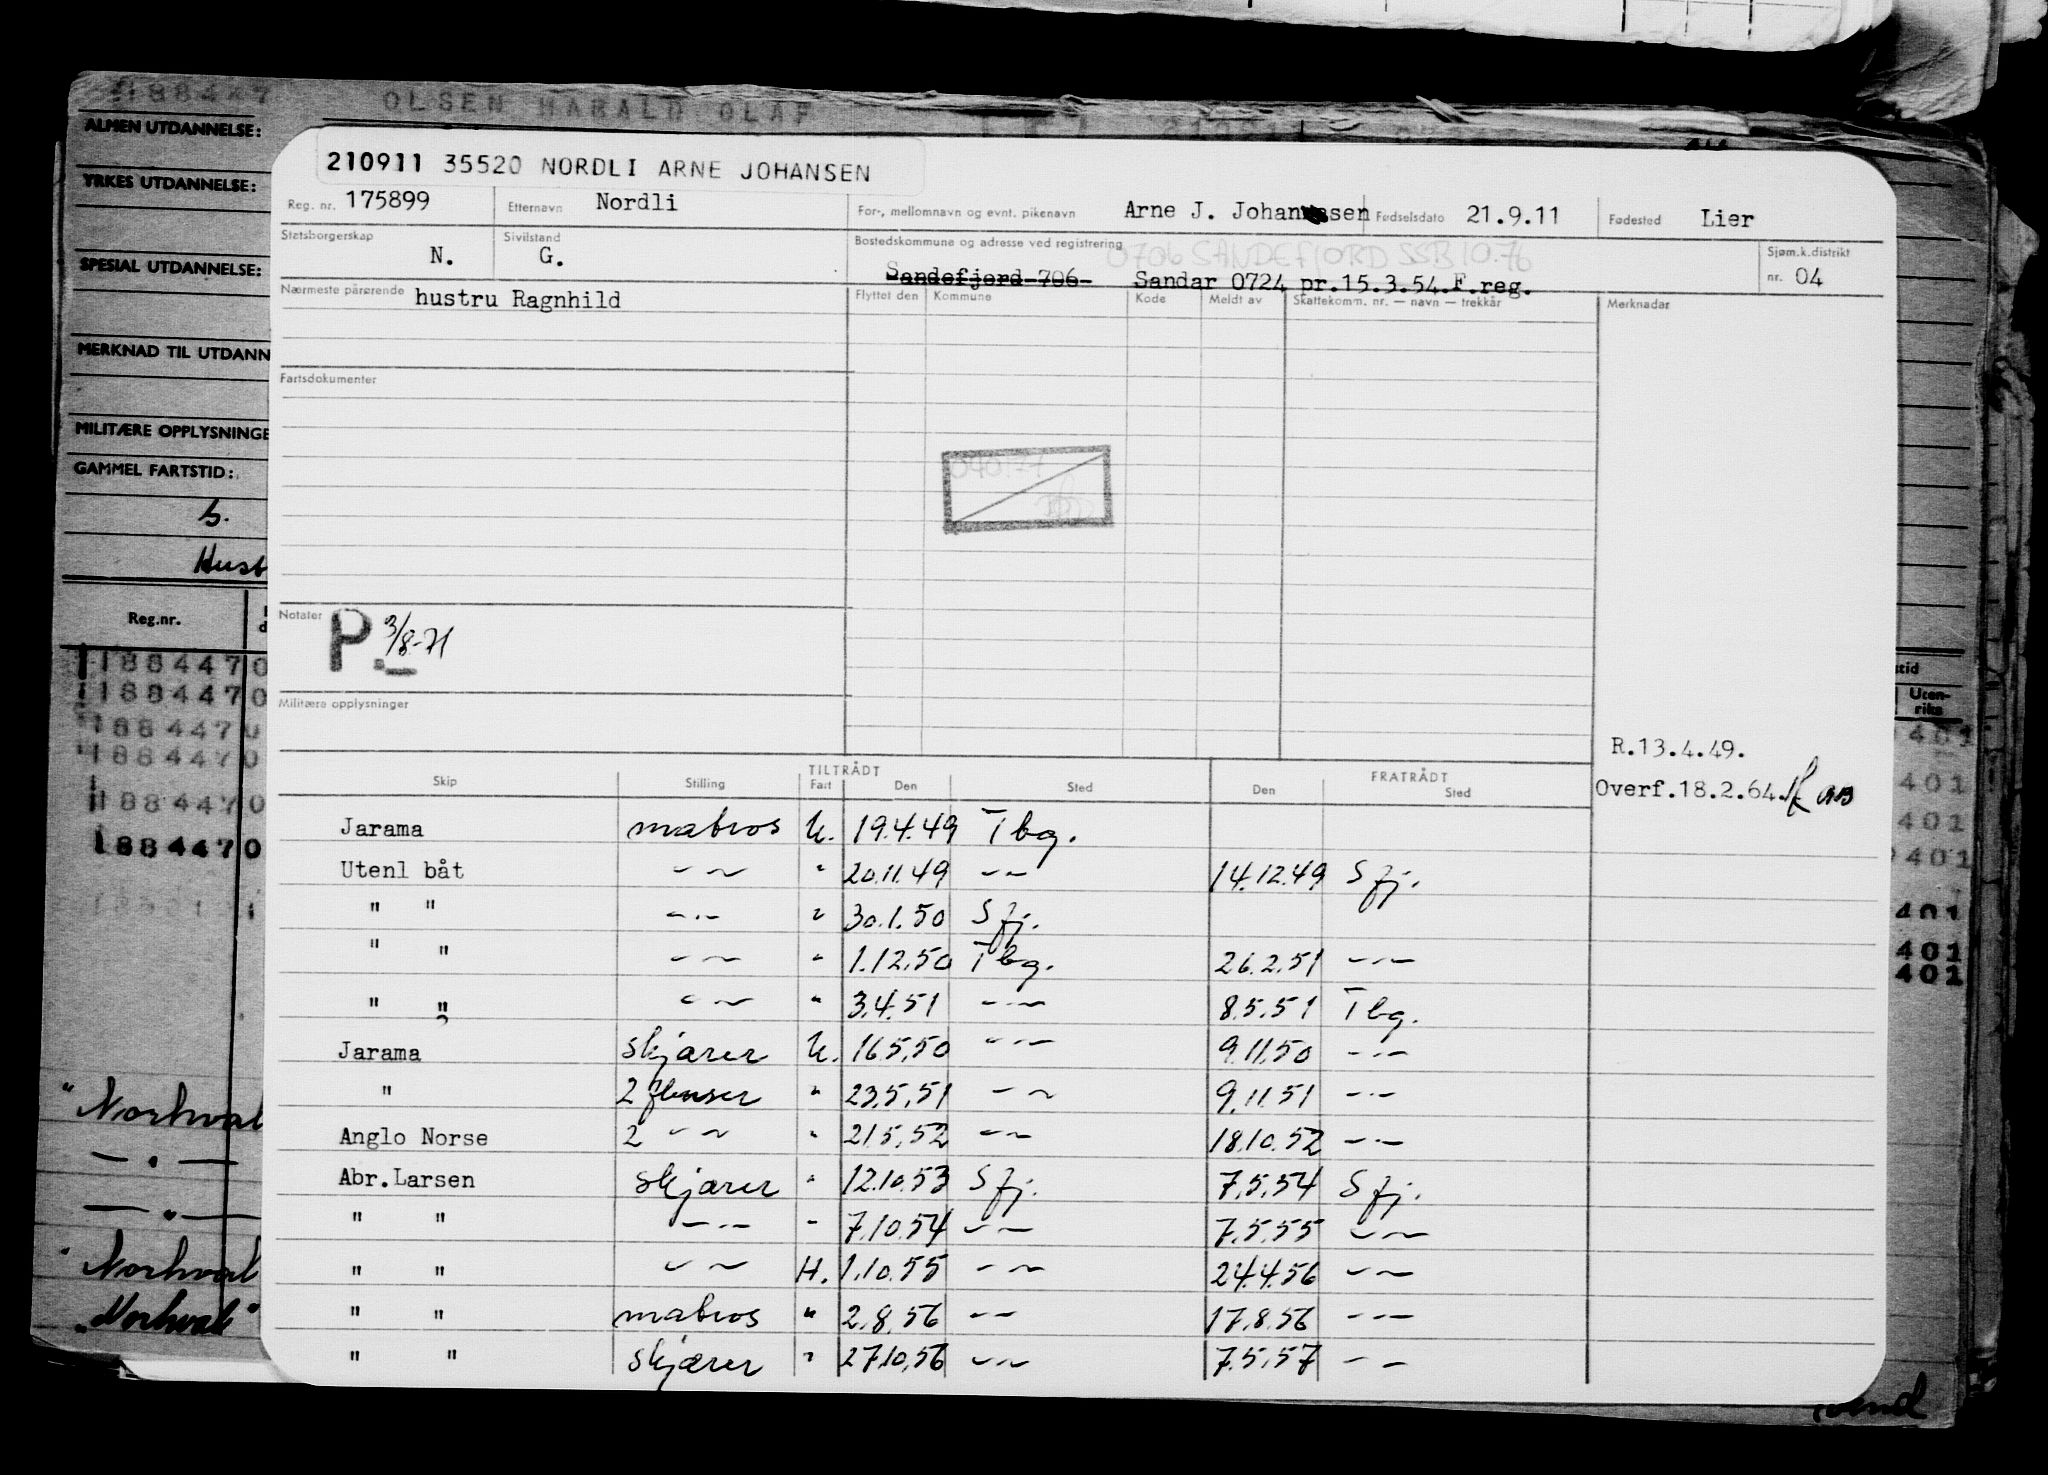 188447
OLSEN HARALD OLAF
ALMEN UTDANNELSE:
YRKES UTDANNELSE:
SPESIAL UTDANNELSE:
MERKNAD TIL UTDANN
MILITÆRE OPPLYSNINGE
GAMMEL FARTSTID:
Reg.nr.
1884470
1884470
1884470
1884470
1884470
1884470
"Norhval
"Norhval
"Norhval"
210911 35520 NORDLI ARNE JOHANSEN
Reg. nr. 175899 Etternavn Nordli For-, mellomnavn og evnt. pikenavn Arne J. Johansen Fødselsdato 21.9.11 Fødested Lier
Statsborgerskap N. Sivilstand G. Bostedskommune og adresse ved registrering 0706 SANDEFJORD SSB 10.76 Sjøm.k.distrikt
Sandefjord 706 Sandar 0724 pr.15.3.54.F.reg. nr. 04
Nærmeste pårørende hustru Ragnhild Flyttet den Kommune Kode Meldt av Skattekomm. nr. — navn — trekkår Merknader
Fartsdokumenter
Notater P. 3/8-71
Militære opplysninger
R.13.4.49.
Overf.18.2.64.
TILTRÅDT FRATRÅDT
Skip Stilling Fart Den Sted Den Sted
Jarama matros U. 19.4.49 Tbg.
Utenl båt -"- " 20.11.49 -"- 14.12.49 Sfj.
" " -"- " 30.1.50 Sfj.
" " -"- " 1.12.50 Tbg. 26.2.51 -"-
" " -"- " 3.4.51 -"- 8.5.51 Tbg.
Jarama skjærer U. 16.5.50 -"- 9.11.50 -"-
" 2 flenser " 23.5.51 -"- 9.11.51 -"-
Anglo Norse 2 -"- " 21.5.52 -"- 18.10.52 -"-
Abr.Larsen skjærer " 12.10.53 Sfj. 7.5.54 Sfj.
" " -"- " 7.10.54 -"- 7.5.55 -"-
" " -"- H. 1.10.55 -"- 24.4.56 -"-
" " matros " 2.8.56 -"- 17.8.56 -"-
" " skjærer " 27.10.56 -"- 7.5.57 -"-
Uten-
riks
401
401
401
401
401
401
401
vend